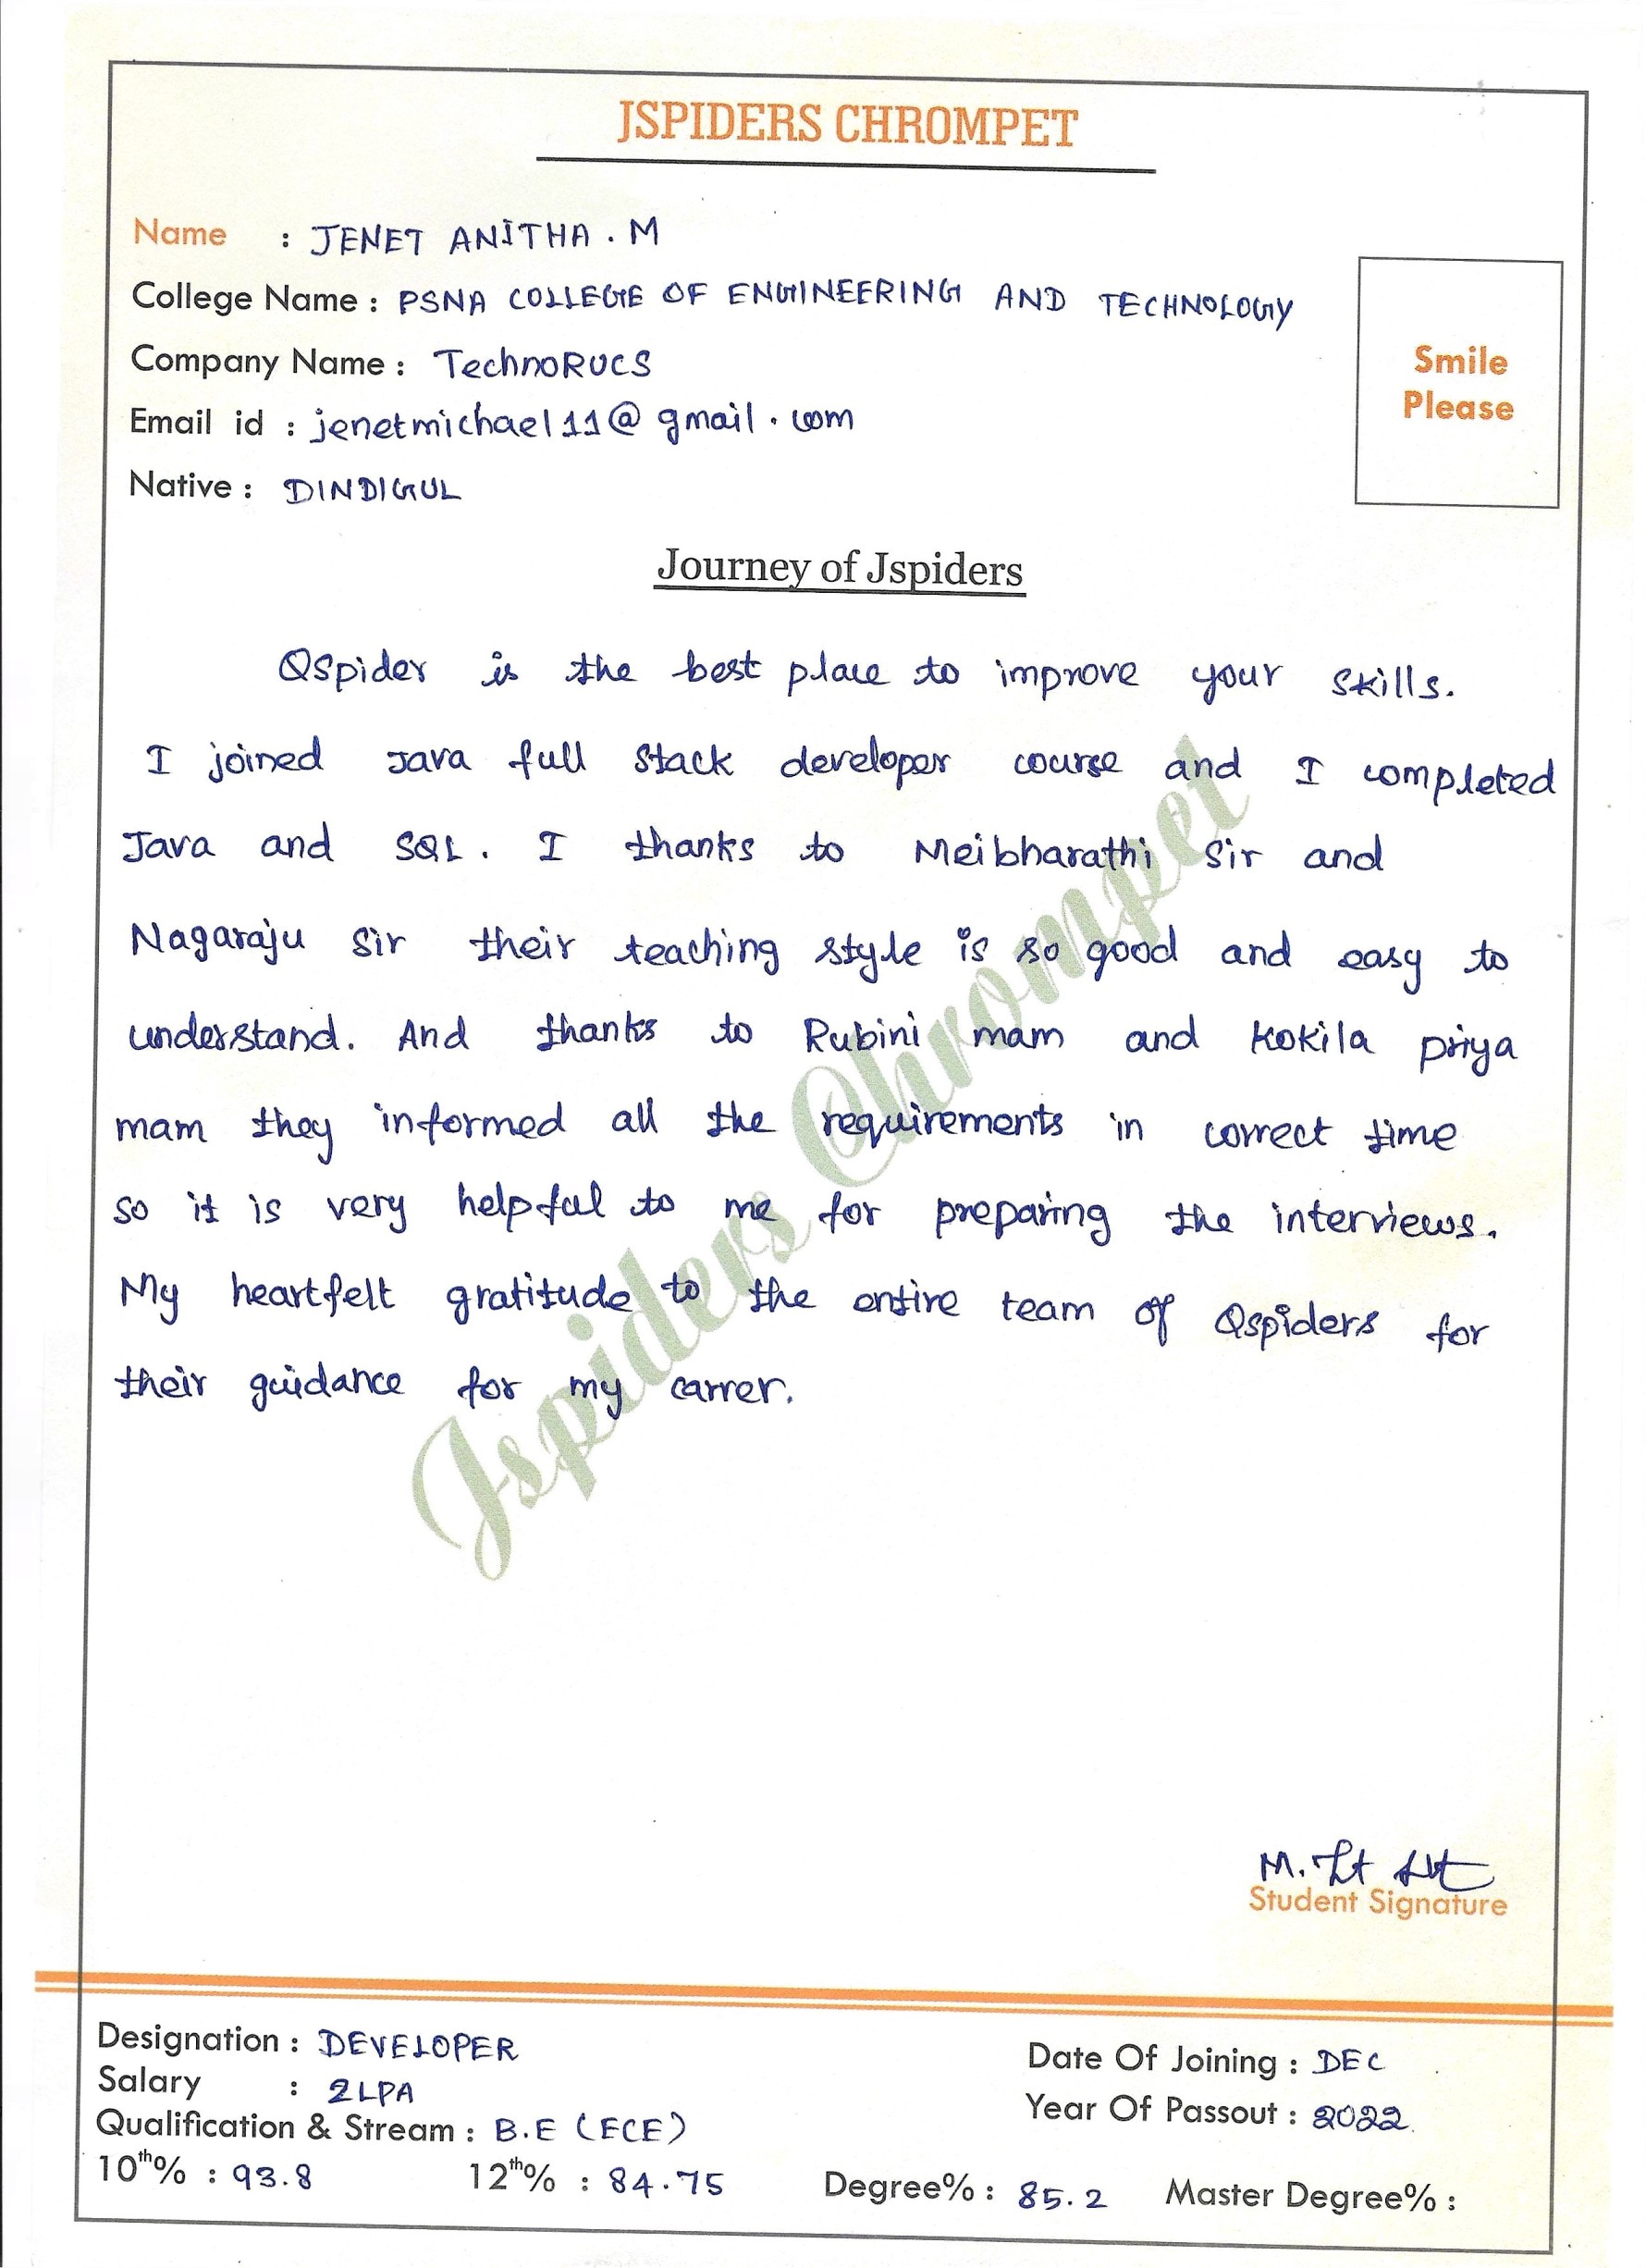 JSPIDERS CHROMPET
Name : JENET ANITHA . M
College Name : PSNA COLLEGE OF ENGINEERING AND TECHNOLOGY
Company Name : TechnoRUCS
Email id : jenetmichael11@gmail.com
Native : DINDIGUL
Smile
Please
Journey of Jspiders
QSpider is the best place to improve your skills.
I joined Java full stack developer course and I completed
Java and SQL. I thanks to Meibharathi Sir and
Nagaraju Sir their teaching style is so good and easy to
understand. And thanks to Rubini mam and Kokila priya
mam they informed all the requirements in correct time
so it is very helpful to me for preparing the interviews.
My heartfelt gratitude to the entire team of Qspiders for
their guidance for my carrer.
Jspiders Chrompet
Student Signature
Designation : DEVELOPER
Date Of Joining : DEC
Salary : 2LPA
Year Of Passout : 2022
Qualification & Stream : B.E (ECE)
10th% : 93.8 12th% : 84.75 Degree% : 85.2 Master Degree% :